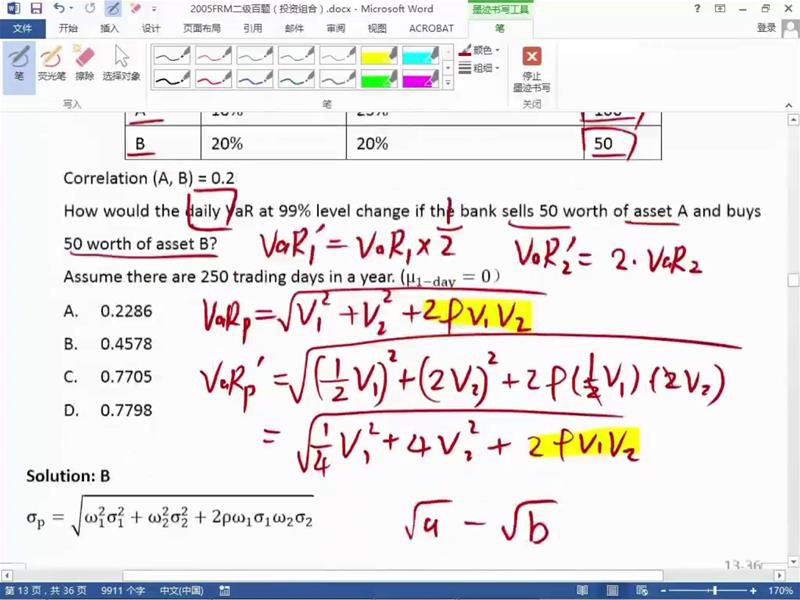 2005FRM二级百题（投资组合）.docx - Microsoft Word
墨迹书写工具
登录
文件 开始 插入 设计 页面布局 引用 邮件 审阅 视图 ACROBAT 笔
笔 荧光笔 擦除 选择对象
颜色
粗细
停止
墨迹书写
写入 笔 关闭
B 20% 20% 50
Correlation (A, B) = 0.2
How would the daily VaR at 99% level change if the bank sells 50 worth of asset A and buys
50 worth of asset B?
VaR₁' = VaR₁ × 1/2 VaR₂' = 2 · VaR₂
Assume there are 250 trading days in a year. (μ₁₋day = 0)
A. 0.2286
B. 0.4578
C. 0.7705
D. 0.7798
VaRp = √(V₁² + V₂² + 2ρV₁V₂)
VaRp' = √((1/2 V₁)² + (2V₂)² + 2ρ(1/2 V₁)(2V₂))
= √(1/4 V₁² + 4V₂² + 2ρV₁V₂)
Solution: B
σp = √(ω₁²σ₁² + ω₂²σ₂² + 2ρω₁σ₁ω₂σ₂)
√a − √b
13-36
第 13 页，共 36 页 9911 个字 中文(中国) 170%